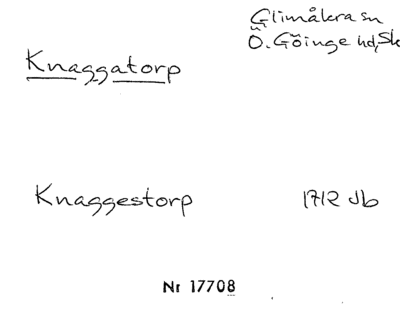 Glimåkra sn
Ö. Göinge hd, Sk
Knaggatorp
Knaggestorp 1712 Jb
Nr 17708